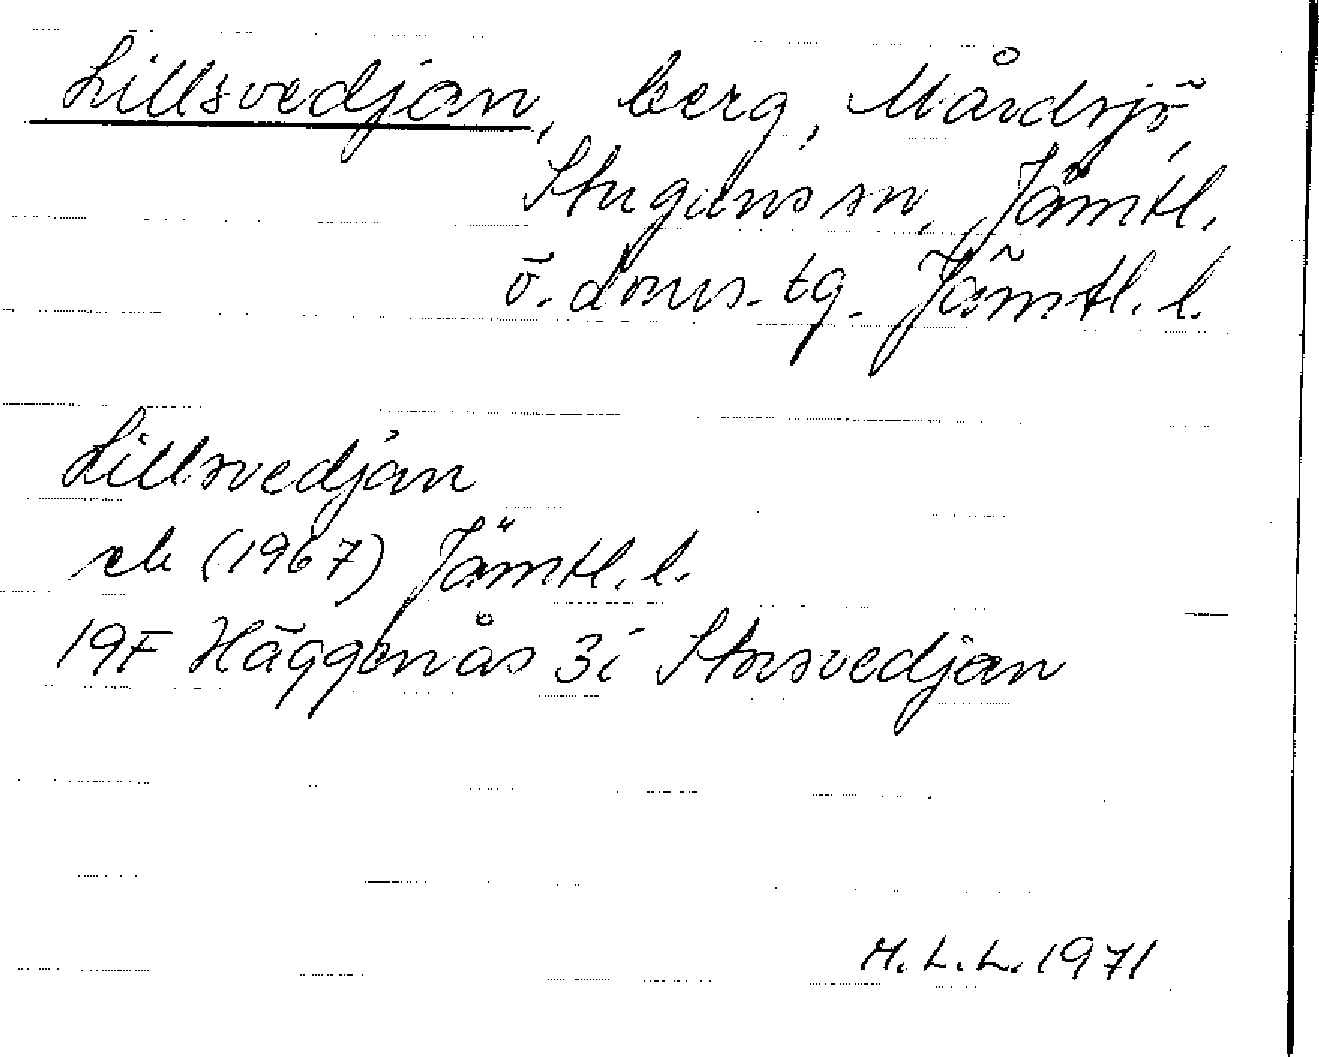 Lillsvedjan, berg, Mårdsjö,
Stuguns sn, Jämtl.
ö. doms. tg. Jämtl. l.
Lillsvedjan
ek (1967) Jämtl. l.
19F Häggenås 3i Storsvedjan
M.L.L. 1971